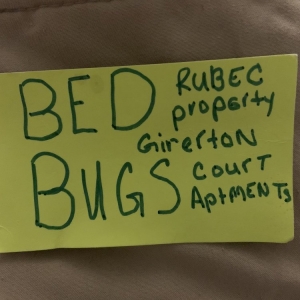 BED
BUGS
RUBEC
property
Girerton
COURT
AptMENTs